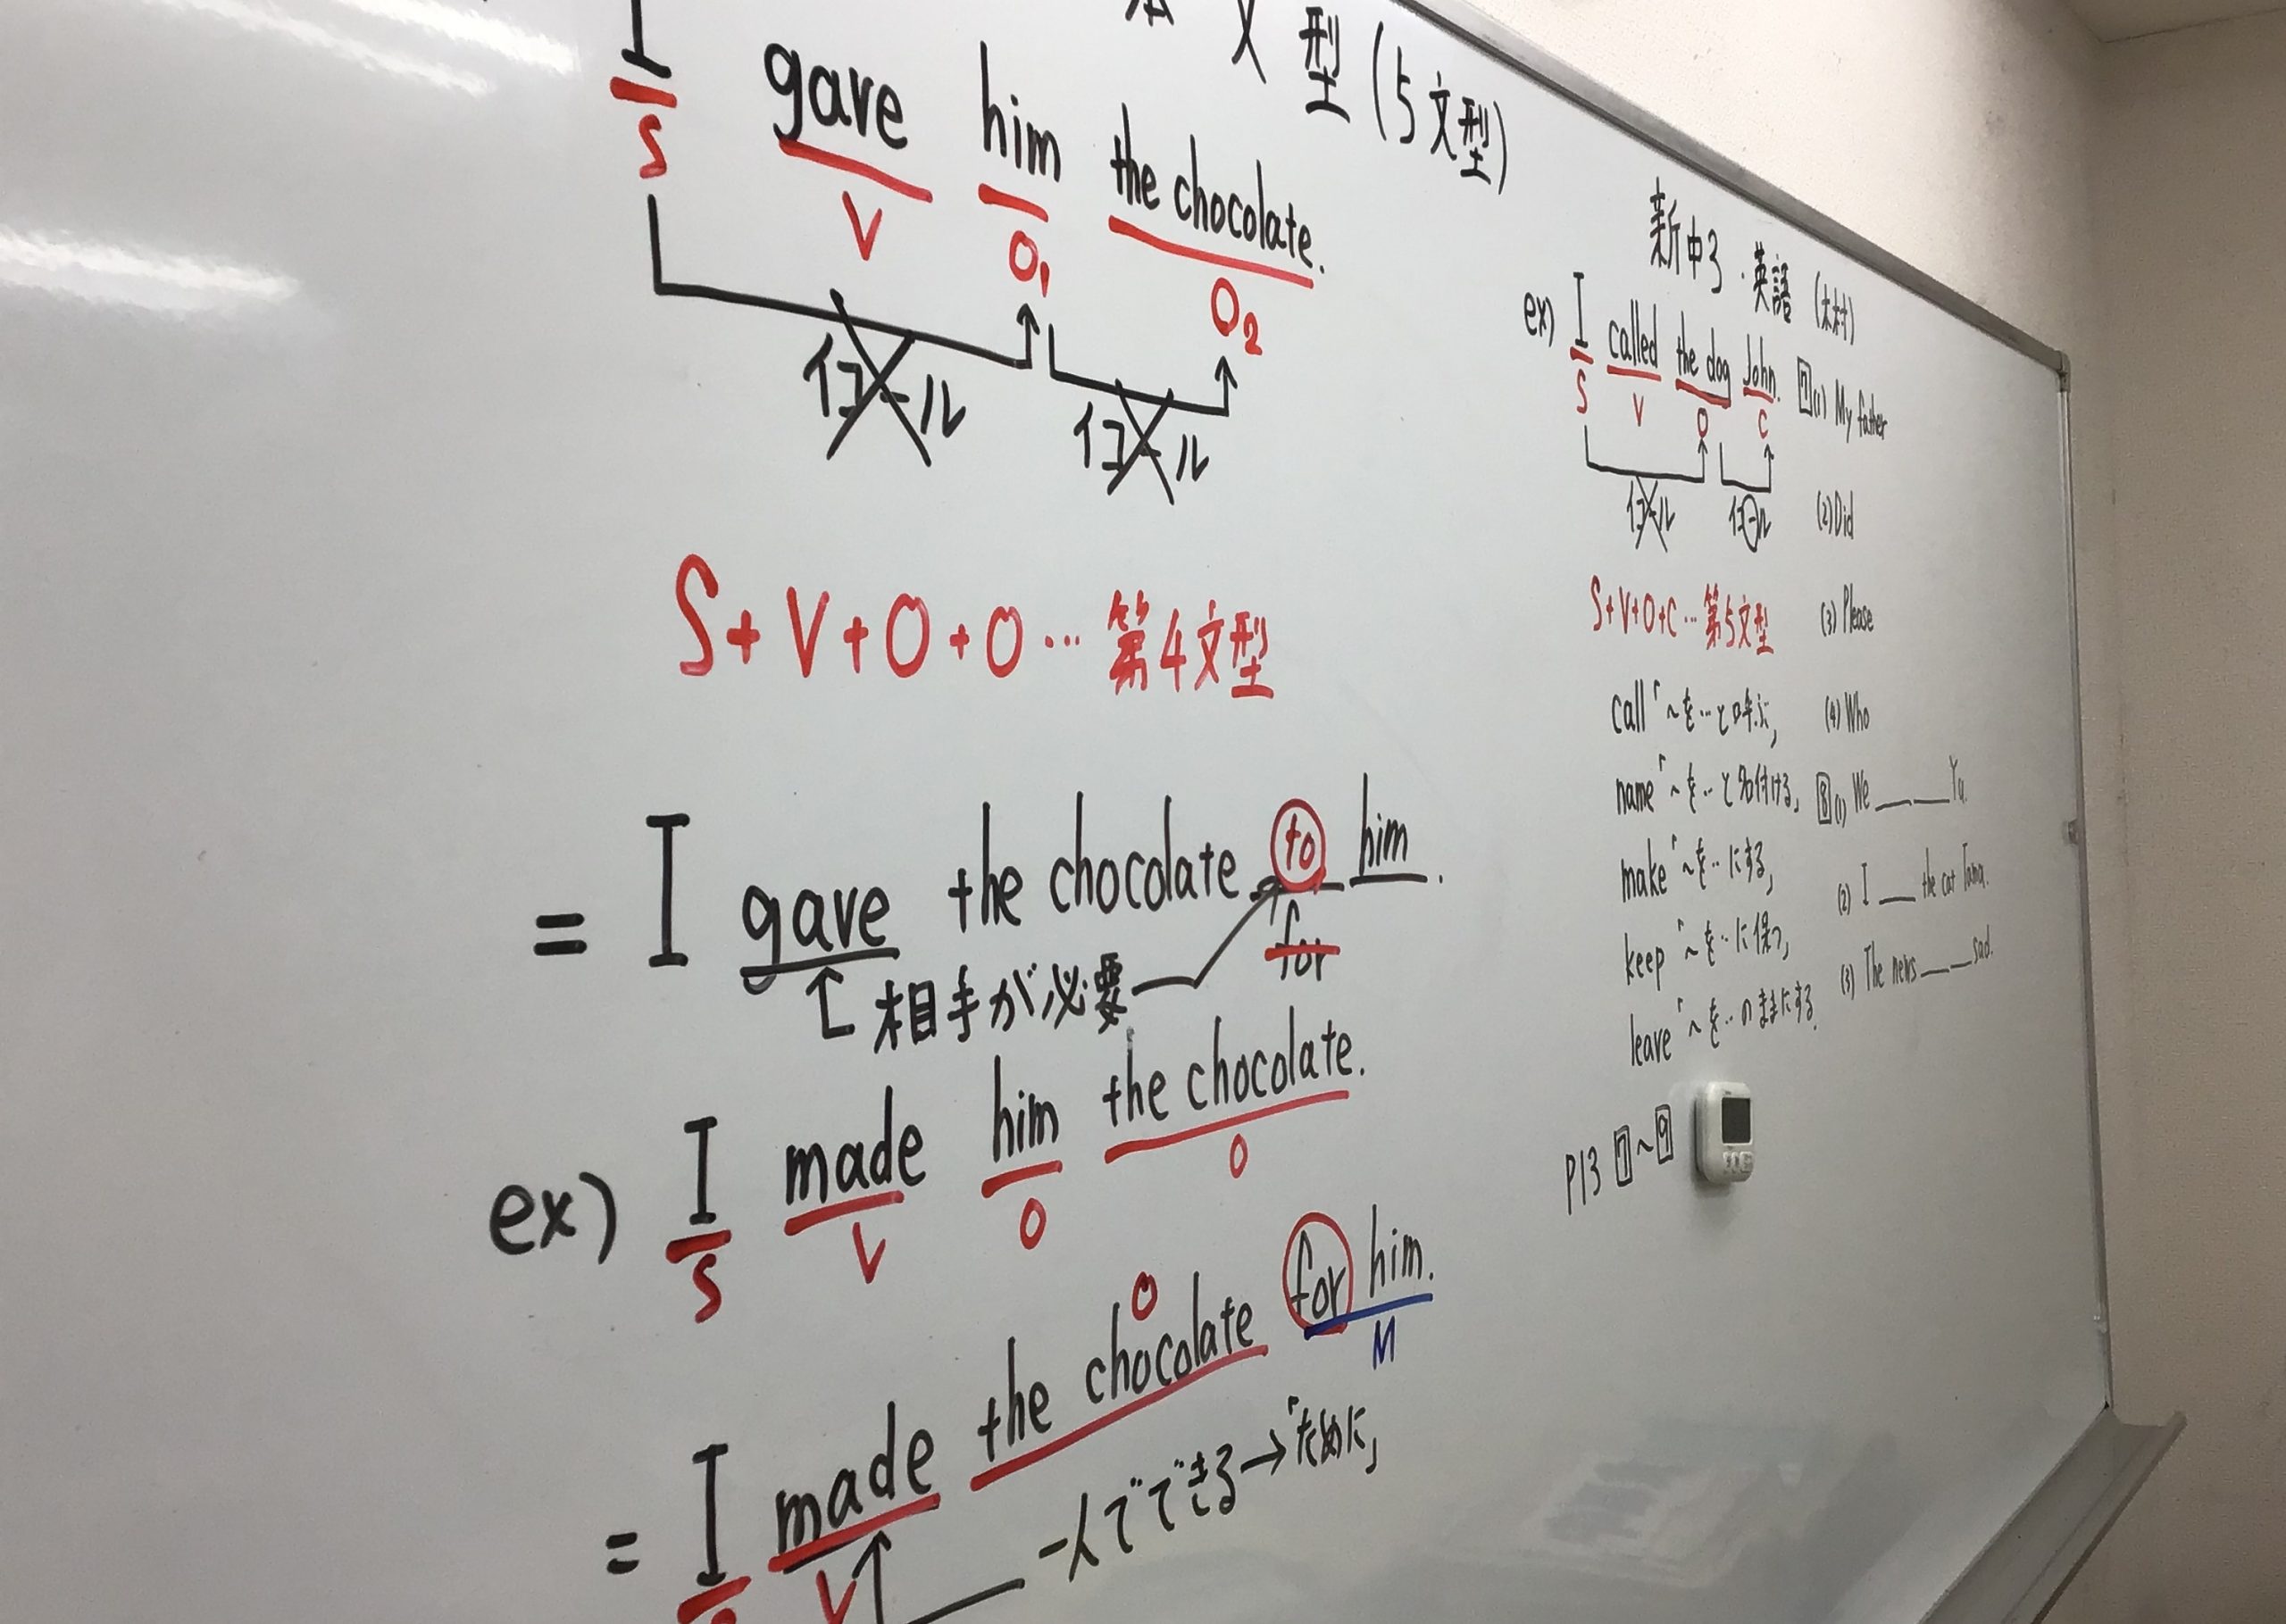 文型(5文型)
I gave him the chocolate.
S V O1 O2
イコール イコール
S+V+O+O…第4文型
= I gave the chocolate to him.
for
相手が必要
ex) I made him the chocolate.
S V O O
O
= I made the chocolate for him.
V M
一人でできる→「ために」
新中3・英語
ex) I called the dog John.
S V O C
イコール イコール
S+V+O+C…第5文型
call「~を…と呼ぶ」
name「~を…と名付ける」
make「~を…にする」
keep「~を…に保つ」
leave「~を…のままにする」
P13 7~9
7(1) My father
(2) Did
(3) Please
(4) Who
8(1) We ___ ___ Yu.
(2) I ___ the cat Tama.
(3) The news ___ ___ sad.